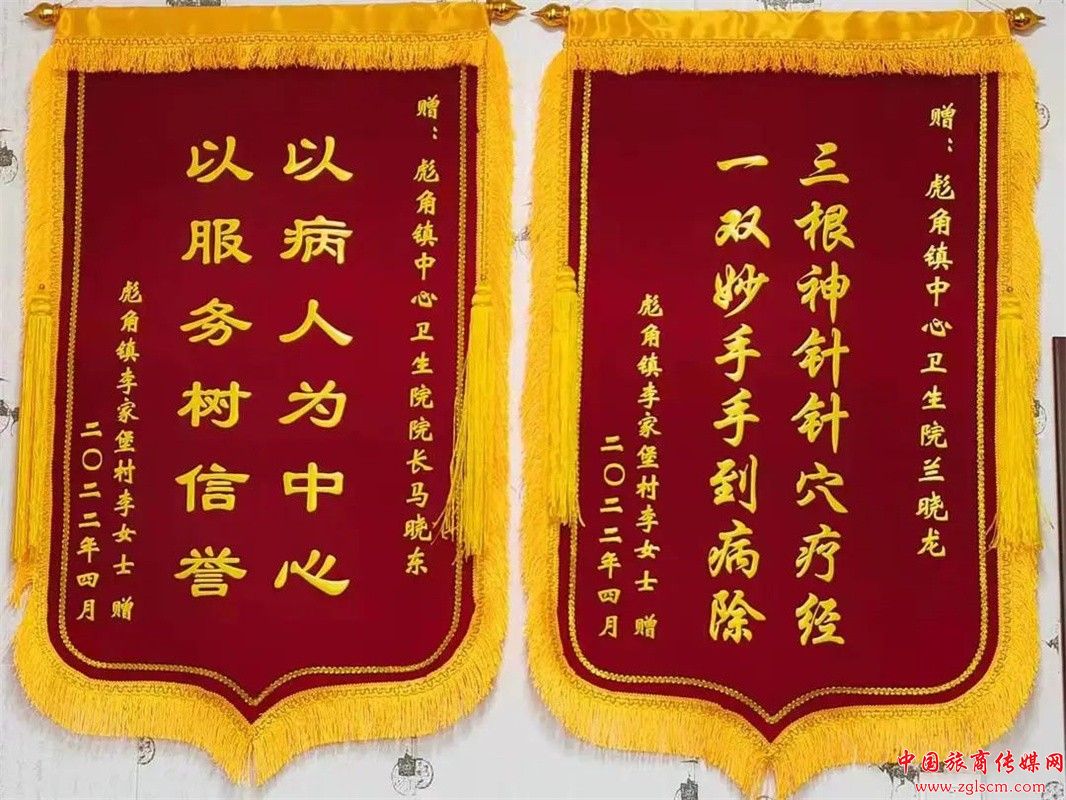 赠：彪角镇中心卫生院院长马晓东
以病人为中心
以服务树信誉
彪角镇李家堡村李女士 赠
二〇二二年四月
赠：彪角镇中心卫生院兰晓龙
三根神针针针穴疗经
一双妙手手到病除
彪角镇李家堡村李女士 赠
二〇二二年四月
中国旅商传媒网
www.zglscm.com